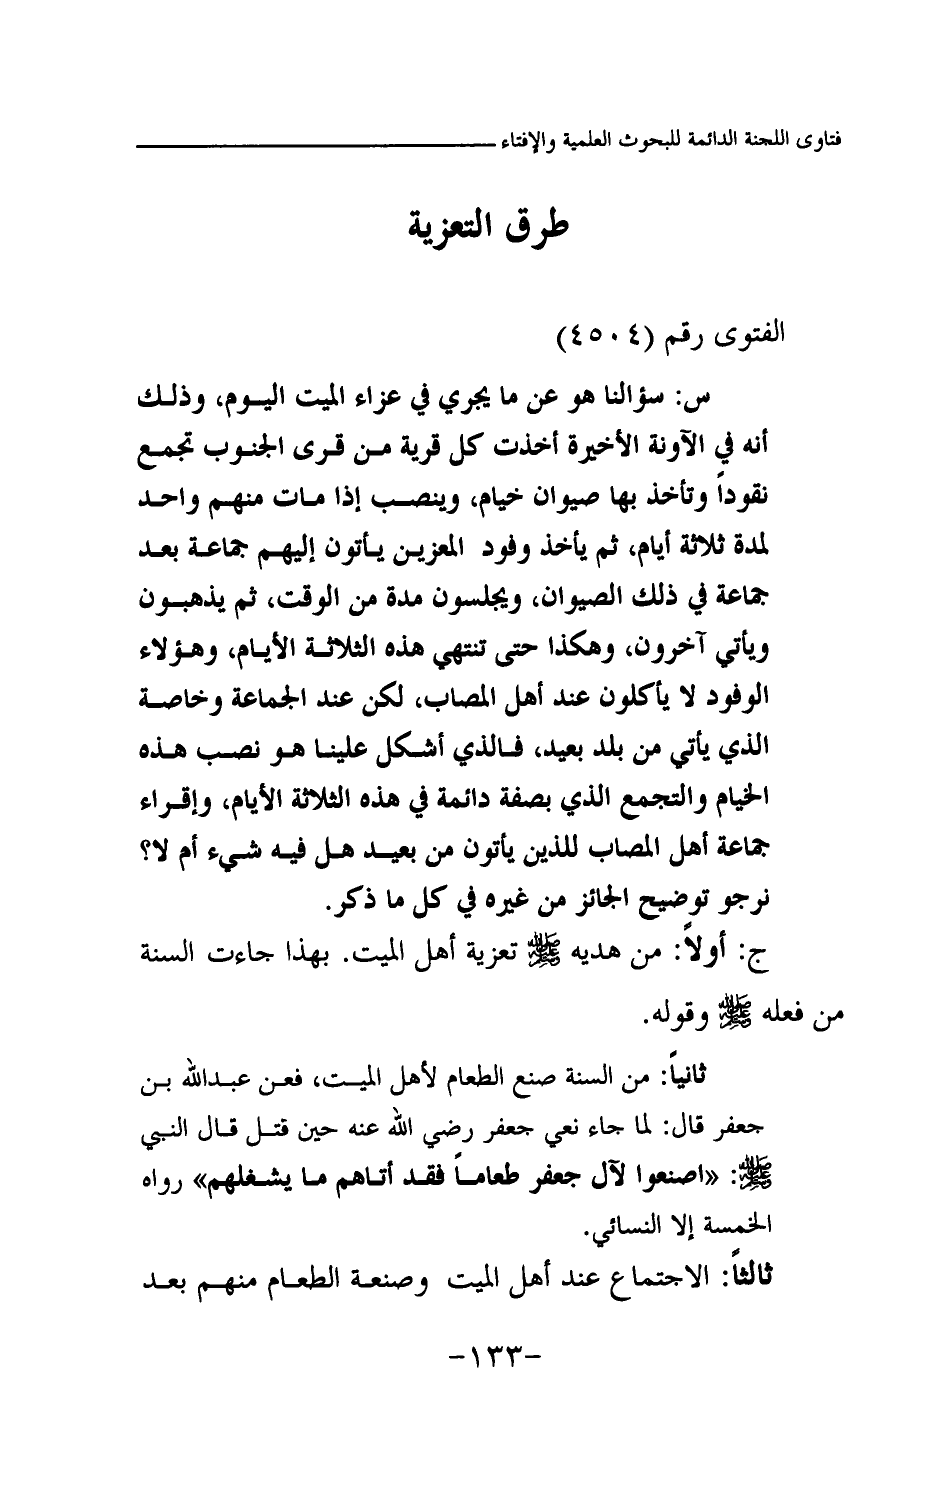 فتاوى اللجنة الدائمة للبحوث العلمية والإفتاء
طرق التعزية
الفتوى رقم (٤٥٠٤)
س: سؤالنا هو عن ما يجري في عزاء الميت اليوم، وذلك
أنه في الآونة الأخيرة أخذت كل قرية من قرى الجنوب تجمع
نقوداً وتأخذ بها صيوان خيام، وينصب إذا مات منهم واحد
لمدة ثلاثة أيام، ثم يأخذ وفود المعزين يأتون إليهم جماعة بعد
جماعة في ذلك الصيوان، ويجلسون مدة من الوقت، ثم يذهبون
ويأتي آخرون، وهكذا حتى تنتهي هذه الثلاثة الأيام، وهؤلاء
الوفود لا يأكلون عند أهل المصاب، لكن عند الجماعة وخاصة
الذي يأتي من بلد بعيد، فالذي أشكل علينا هو نصب هذه
الخيام والتجمع الذي بصفة دائمة في هذه الثلاثة الأيام، وإقراء
جماعة أهل المصاب للذين يأتون من بعيد هل فيه شيء أم لا؟
نرجو توضيح الجائز من غيره في كل ما ذكر.
ج: أولاً: من هديه ﷺ تعزية أهل الميت. بهذا جاءت السنة
من فعله ﷺ وقوله.
ثانياً: من السنة صنع الطعام لأهل الميت، فعن عبدالله بن
جعفر قال: لما جاء نعي جعفر رضي الله عنه حين قتل قال النبي
ﷺ: «اصنعوا لآل جعفر طعاماً فقد أتاهم ما يشغلهم» رواه
الخمسة إلا النسائي.
ثالثاً: الاجتماع عند أهل الميت وصنعة الطعام منهم بعد
-١٣٣-